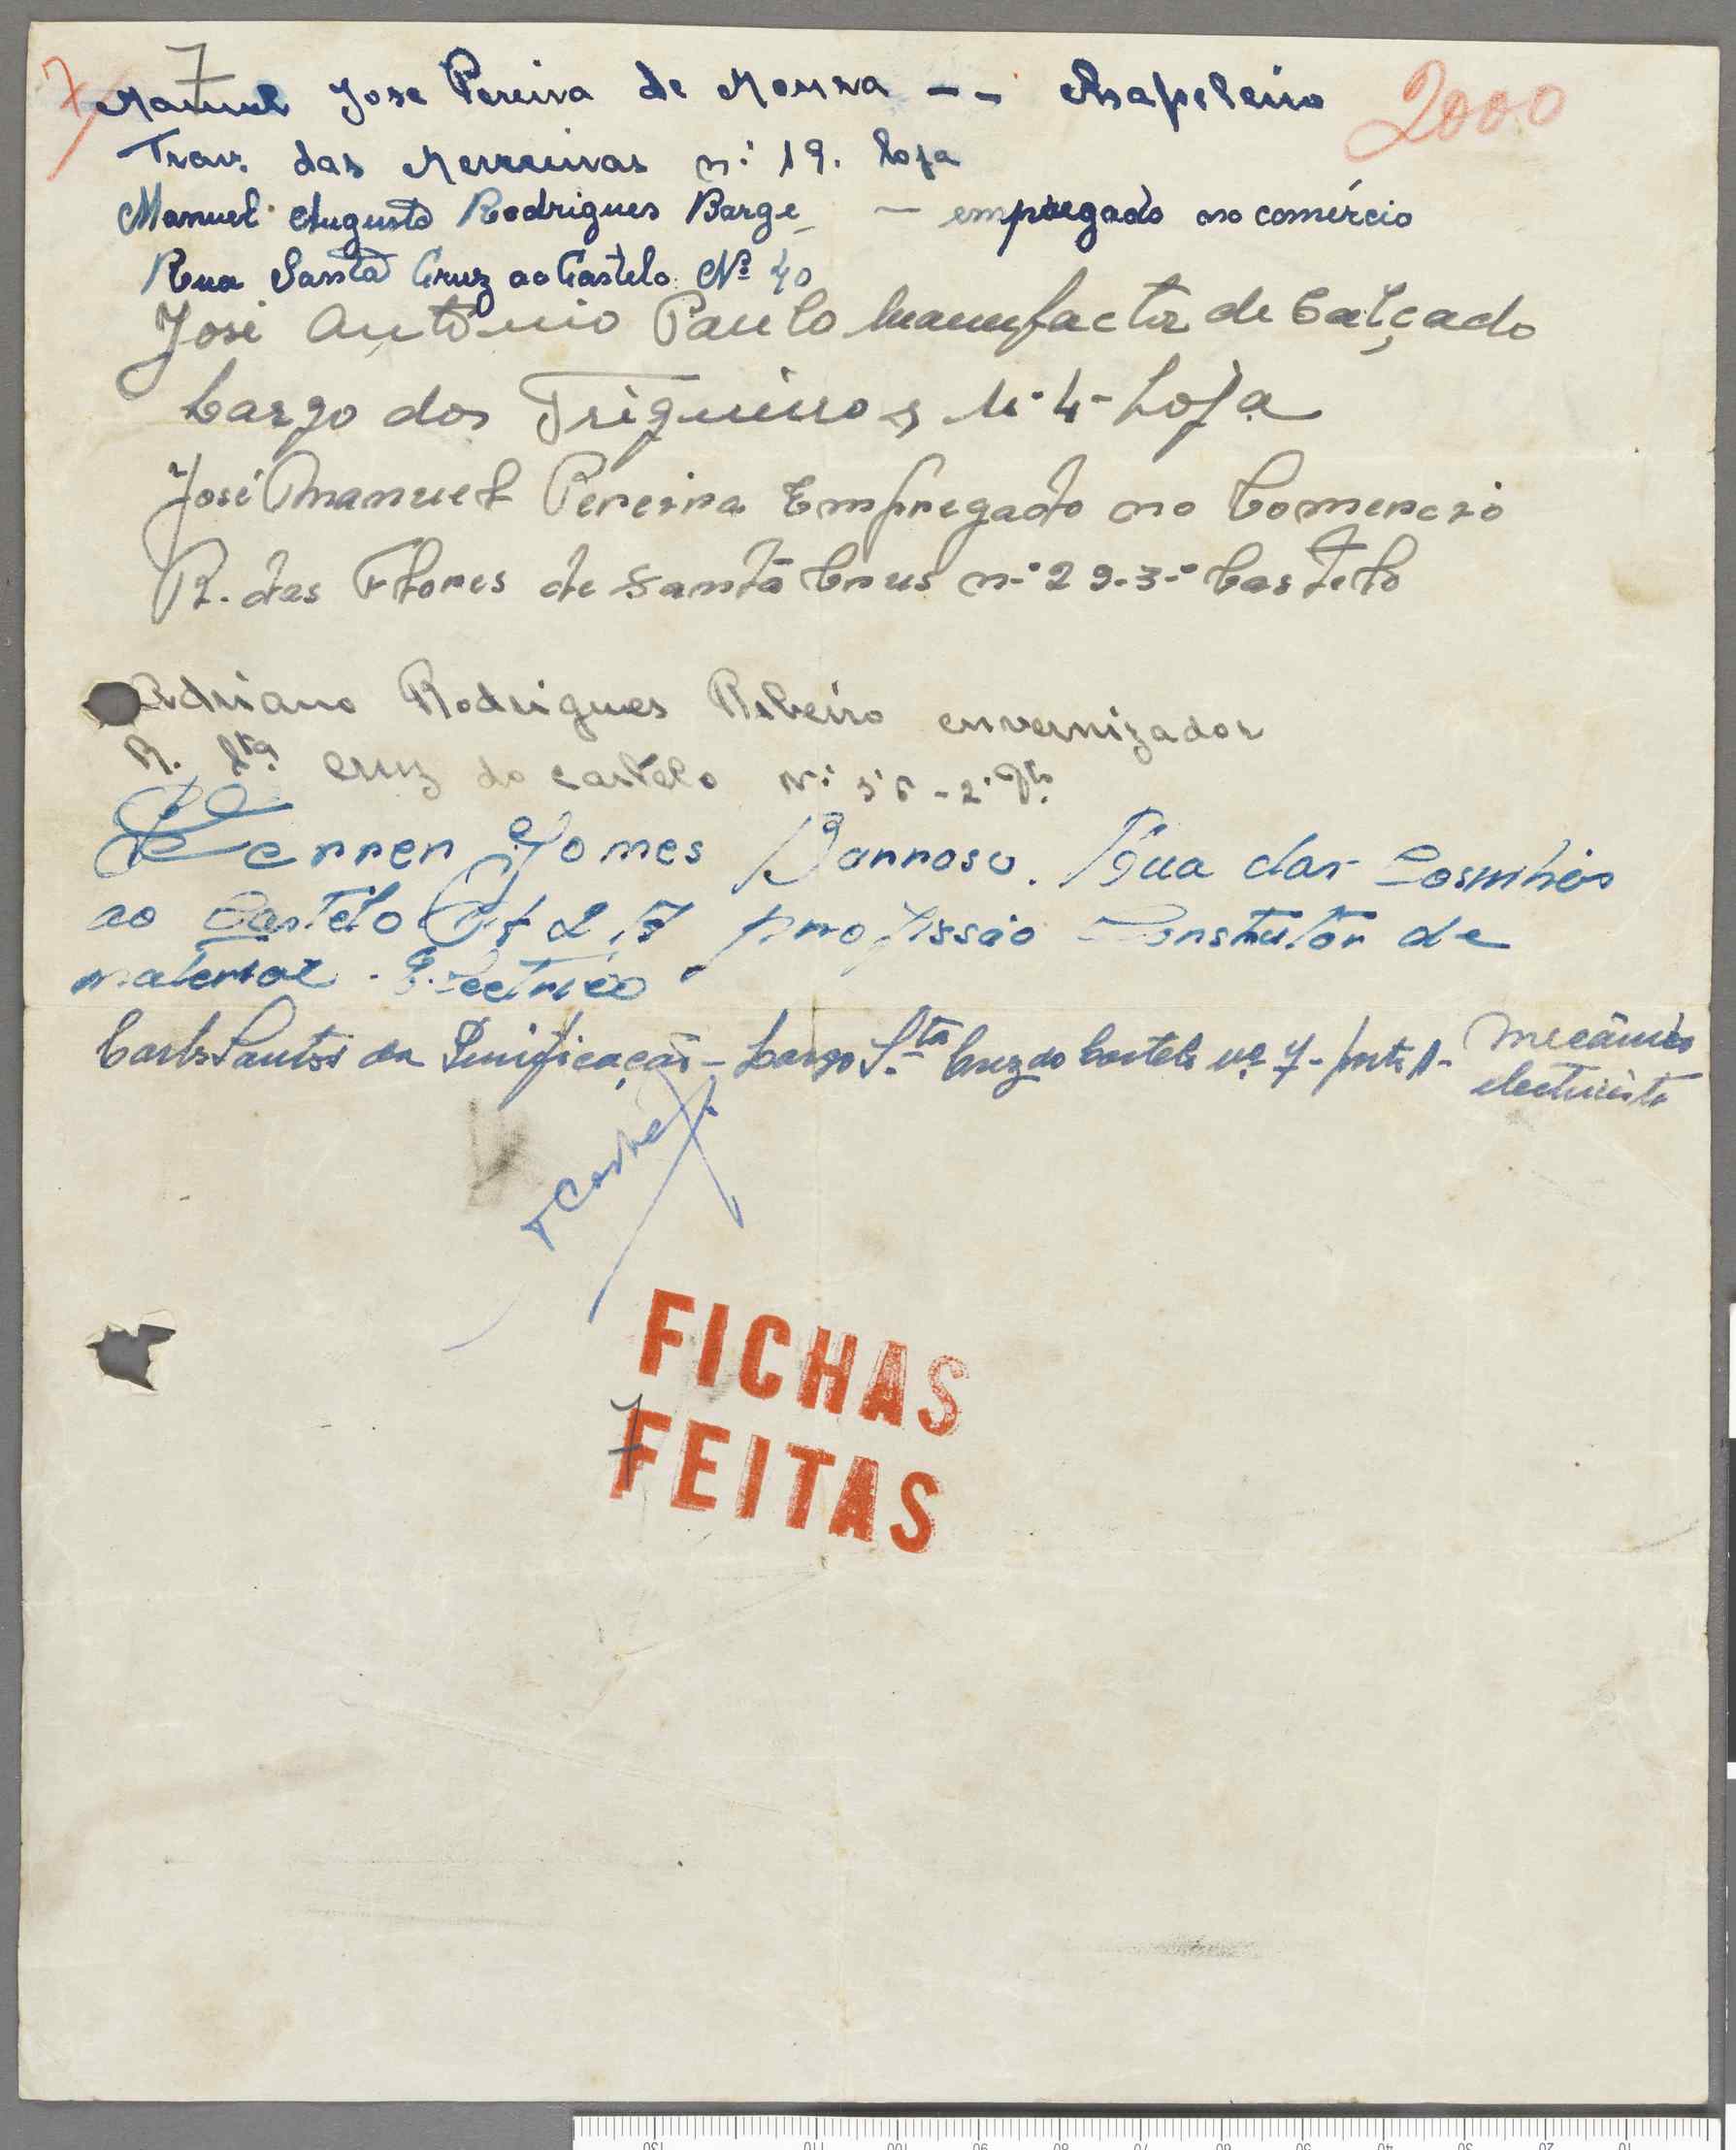 7 7 2000
Manuel Jose Pereira de Moura -- Chapeleiro
Trav. das Merceeiras n.º 19. loja
Manuel Augusto Rodrigues Barge - empregado no comércio
Rua Santa Cruz ao Castelo Nº 40
José António Paulo Manufactor de Calçado
Largo dos Trigueiros N.º 4 - Loja
José Manuel Pereira Empregado no Comercio
R. das Flores de Santa Crus n.º 29-3.º Castelo
Adriano Rodrigues Ribeiro envernizador
R. Sta Cruz do Castelo Nº 56-2º
Gomes Barroso. Rua das Cosinhas
ao Castelo 2 profissão Construtor de
material Electrico
Carlos Santos da Purificação - Largo Sta Cruz do Castelo nº 7 - porta A - mecânico
electricista
FICHAS
7
FEITAS